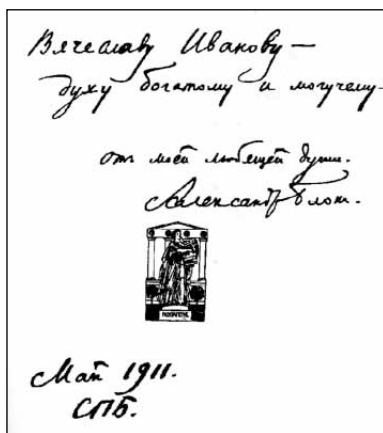 Вячеславу Иванову —
духу богатому и могучему —
отъ моей любящей души.
Александръ Блок.
Май 1911.
СПБ.